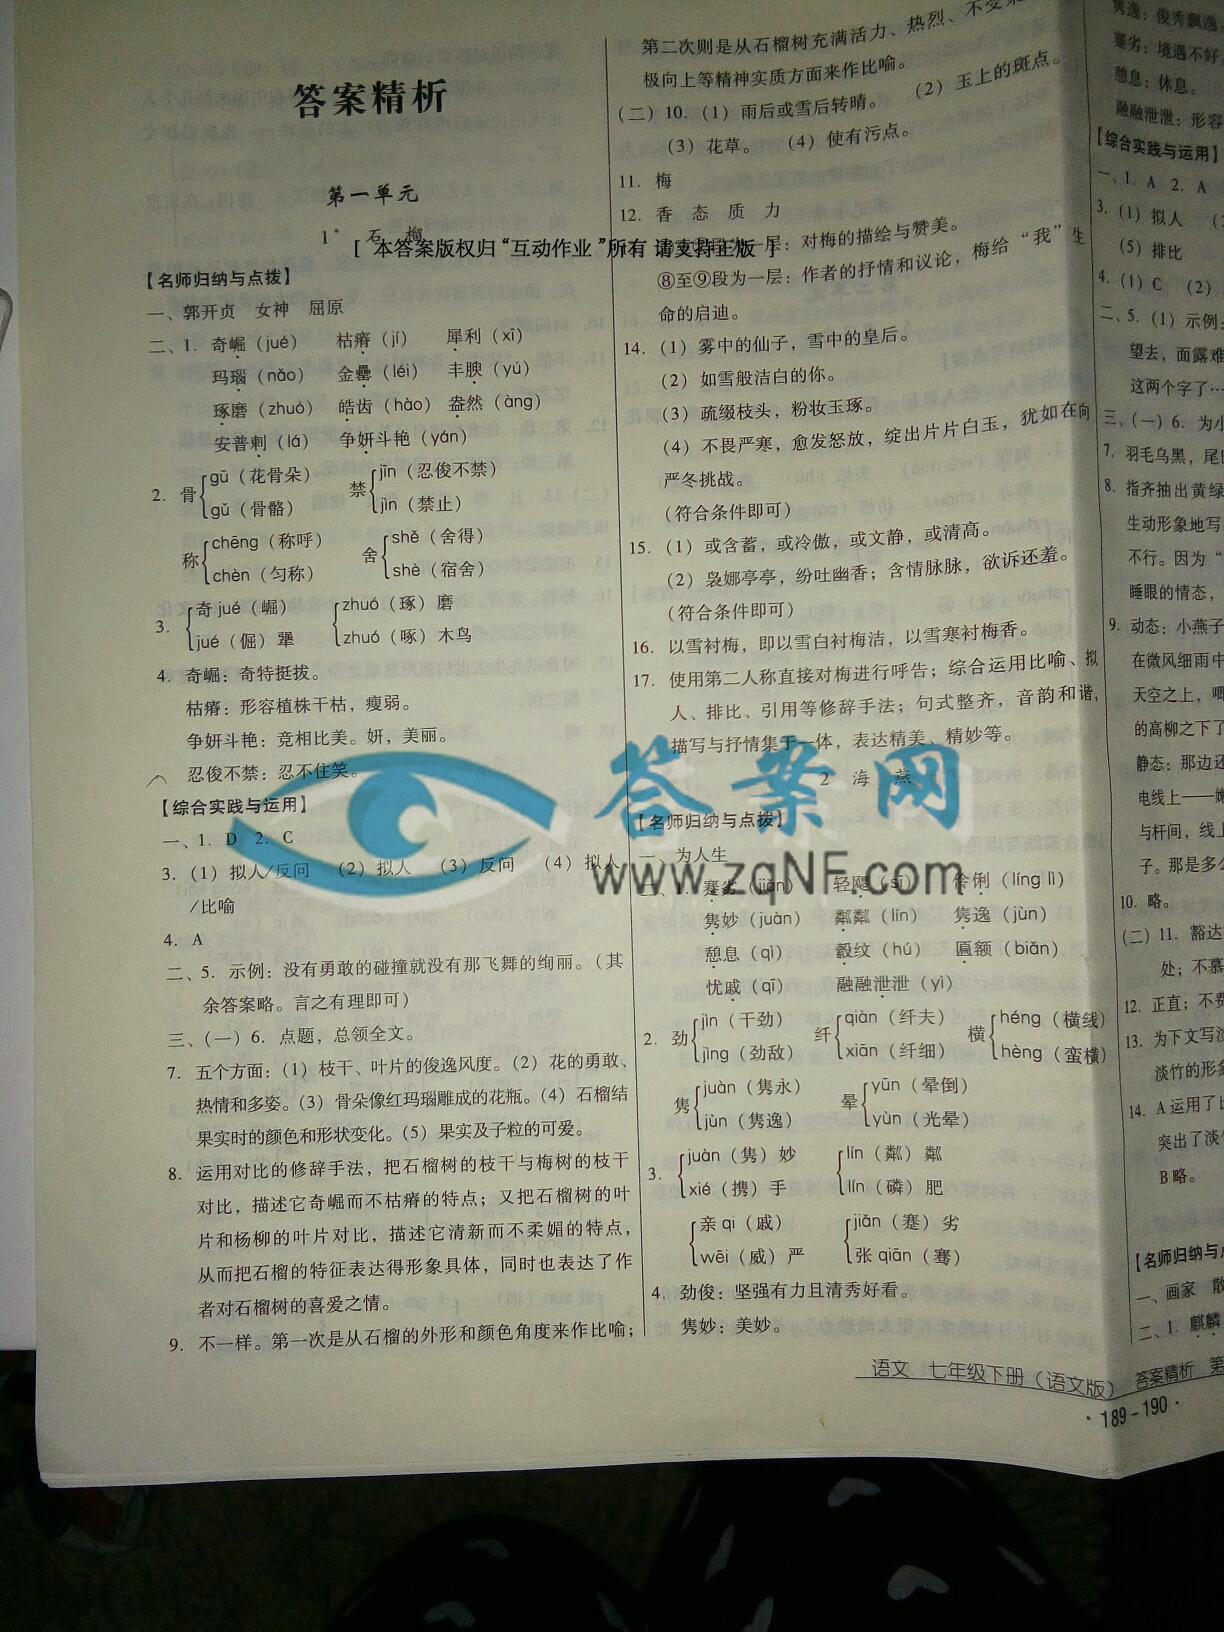 答案精析
第一单元
1* 石 榴
[ 本答案版权归“互动作业”所有 请支持正版 ]
【名师归纳与点拨】
一、郭开贞 女神 屈原
二、1. 奇崛(jué) 枯瘠(jí) 犀利(xī)
玛瑙(nǎo) 金罍(léi) 丰腴(yú)
琢磨(zhuó) 皓齿(hào) 盎然(àng)
安普剌(lá) 争妍斗艳(yán)
2. 骨 gū(花骨朵) 禁 jīn(忍俊不禁)
gǔ(骨骼) jìn(禁止)
称 chēng(称呼) 舍 shě(舍得)
chèn(匀称) shè(宿舍)
3. 奇 jué(崛) zhuó(琢)磨
jué(倔)犟 zhuó(啄)木鸟
4. 奇崛:奇特挺拔。
枯瘠:形容植株干枯,瘦弱。
争妍斗艳:竞相比美。妍,美丽。
忍俊不禁:忍不住笑。
【综合实践与运用】
一、1. D 2. C
3. (1)拟人/反问 (2)拟人 (3)反问 (4)拟人
/比喻
4. A
二、5. 示例:没有勇敢的碰撞就没有那飞舞的绚丽。(其
余答案略。言之有理即可)
三、(一)6. 点题,总领全文。
7. 五个方面:(1)枝干、叶片的俊逸风度。(2)花的勇敢、
热情和多姿。(3)骨朵像红玛瑙雕成的花瓶。(4)石榴结
果实时的颜色和形状变化。(5)果实及子粒的可爱。
8. 运用对比的修辞手法,把石榴树的枝干与梅树的枝干
对比,描述它奇崛而不枯瘠的特点;又把石榴树的叶
片和杨柳的叶片对比,描述它清新而不柔媚的特点,
从而把石榴的特征表达得形象具体,同时也表达了作
者对石榴树的喜爱之情。
9. 不一样。第一次是从石榴的外形和颜色角度来作比喻;
第二次则是从石榴树充满活力、热烈、不受
极向上等精神实质方面来作比喻。
(二)10. (1)雨后或雪后转晴。 (2)玉上的斑点。
(3)花草。 (4)使有污点。
11. 梅
12. 香 态 质 力
段为一层:对梅的描绘与赞美。
⑧至⑨段为一层:作者的抒情和议论,梅给“我”生
命的启迪。
14. (1)雾中的仙子,雪中的皇后。
(2)如雪般洁白的你。
(3)疏缀枝头,粉妆玉琢。
(4)不畏严寒,愈发怒放,绽出片片白玉,犹如在向
严冬挑战。
(符合条件即可)
15. (1)或含蓄,或冷傲,或文静,或清高。
(2)袅娜亭亭,纷吐幽香;含情脉脉,欲诉还羞。
(符合条件即可)
16. 以雪衬梅,即以雪白衬梅洁,以雪寒衬梅香。
17. 使用第二人称直接对梅进行呼告;综合运用比喻、拟
人、排比、引用等修辞手法;句式整齐,音韵和谐,
描写与抒情集于一体,表达精美、精妙等。
2 海 燕
【名师归纳与点拨】
一、为人生
二、1. 蹇劣(jiǎn) 轻飔(sī) 伶俐(líng lì)
隽妙(juàn) 粼粼(lín) 隽逸(jùn)
憩息(qì) 縠纹(hú) 匾额(biǎn)
忧戚(qī) 融融泄泄(yì)
2. 劲 jìn(干劲) 纤 qiàn(纤夫) 横 héng(横线)
jìng(劲敌) xiān(纤细) hèng(蛮横)
隽 juàn(隽永) 晕 yūn(晕倒)
jùn(隽逸) yùn(光晕)
3. juàn(隽)妙 lín(粼)粼
xié(携)手 lín(磷)肥
亲 qi(戚) jiǎn(蹇)劣
wēi(威)严 张 qiān(骞)
4. 劲俊:坚强有力且清秀好看。
隽妙:美妙。
答案网
www.zqNF.com
隽逸:俊秀飘逸
蹇劣:境遇不好
憩息:休息。
融融泄泄:形容
【综合实践与运用】
一、1. A 2. A
3. (1)拟人
(5)排比
4. (1)C (2)
二、5. (1)示例:
望去,面露难
这两个字了…
三、(一)6. 为小
7. 羽毛乌黑,尾
8. 指齐抽出黄绿
生动形象地写
不行。因为“
睡眼的情态,
9. 动态:小燕子
在微风细雨中
天空之上,唧
的高柳之下了
静态:那边还
电线上——
与杆间,线上
子。那是多么
10. 略。
(二)11. 豁达
处;不慕
12. 正直;不
13. 为下文写淡
淡竹的形象
14. A 运用了比
突出了淡竹
B 略。
【名师归纳与点
一、画家 散
二、1. 麒麟
语文 七年级下册(语文版) 答案精析 第
·189-190·